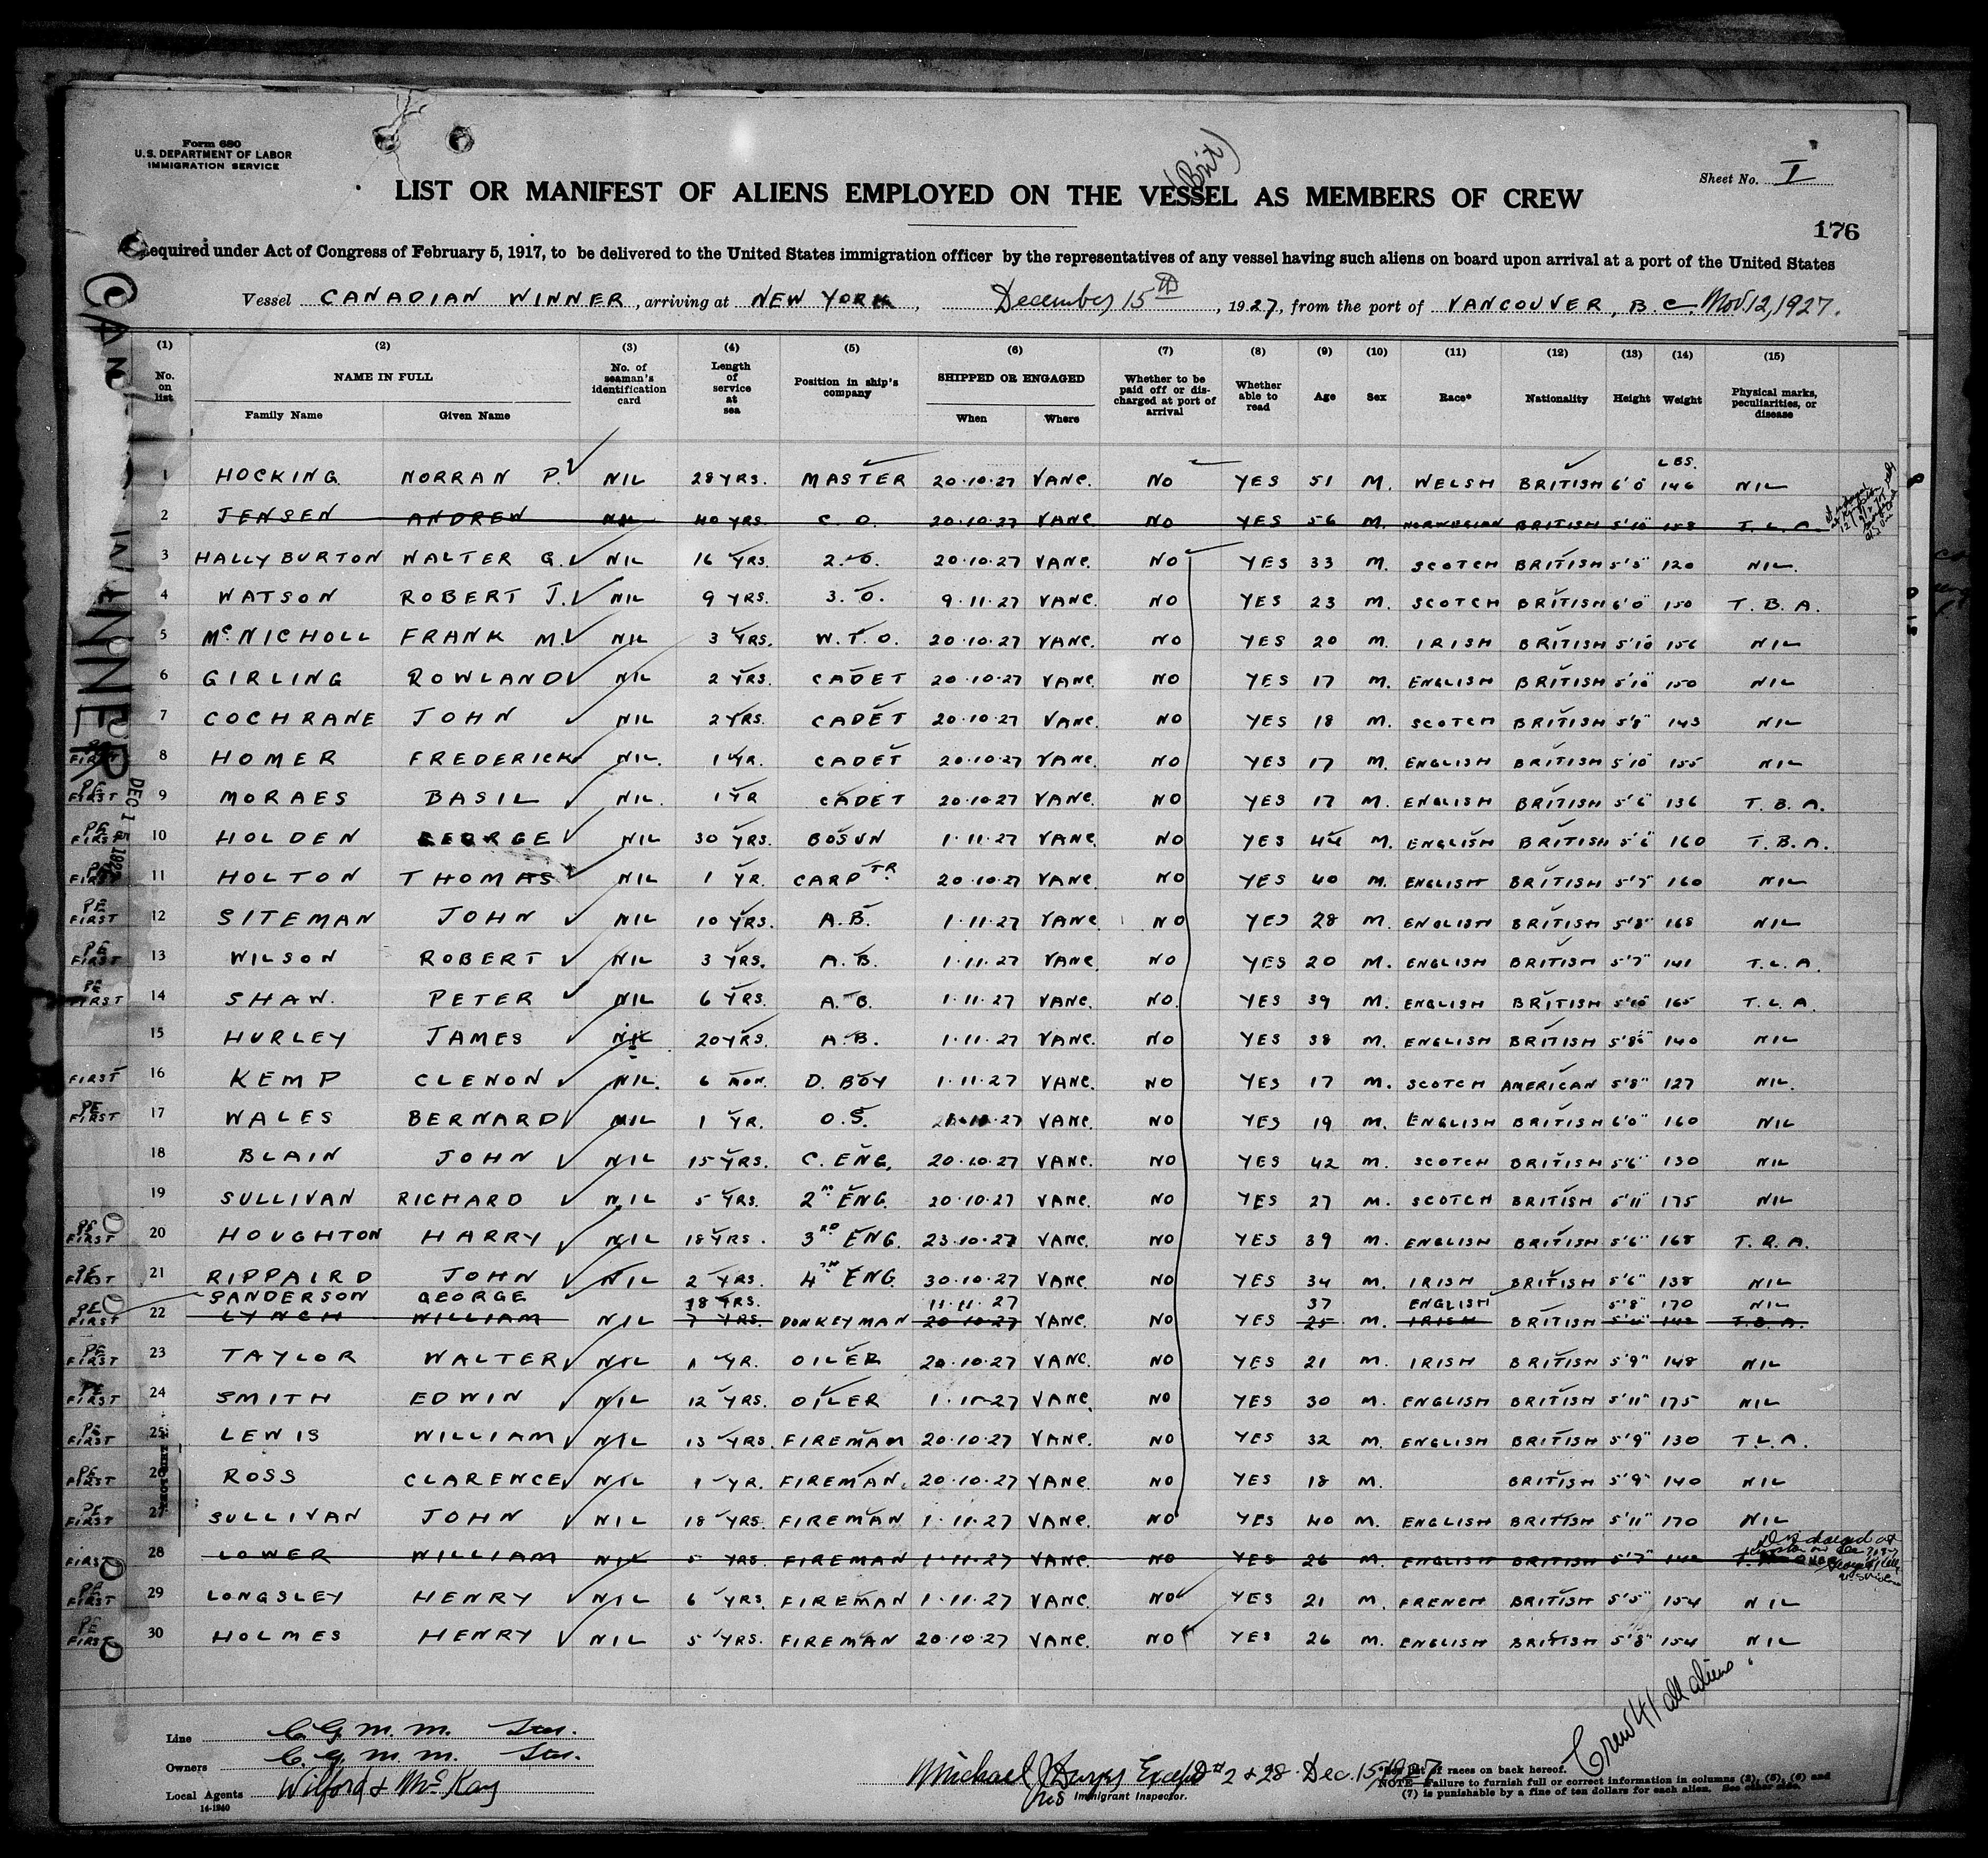 Form 680
U.S. DEPARTMENT OF LABOR
IMMIGRATION SERVICE
(Brit)
Sheet No. I
LIST OR MANIFEST OF ALIENS EMPLOYED ON THE VESSEL AS MEMBERS OF CREW
176
Required under Act of Congress of February 5, 1917, to be delivered to the United States immigration officer by the representatives of any vessel having such aliens on board upon arrival at a port of the United States
Vessel CANADIAN WINNER, arriving at NEW YORK, December 15th, 1927, from the port of VANCOUVER, B.C. Nov. 12, 1927.
CAN WINNER
DEC 15 1927
(1) (2) (3) (4) (5) (6) (7) (8) (9) (10) (11) (12) (13) (14) (15)
No. on list NAME IN FULL Family Name Given Name No. of seaman's identification card Length of service at sea Position in ship's company SHIPPED OR ENGAGED When Where Whether to be paid off or discharged at port of arrival Whether able to read Age Sex Race* Nationality Height Weight Physical marks, peculiarities, or disease
LBS.
1 HOCKING NORRAN P. NIL 28 YRS. MASTER 20.10.27 VANC. NO YES 51 M. WELSH BRITISH 6'0" 146 NIL
2 JENSEN ANDREW NIL 40 YRS. C. O. 20.10.27 VANC NO YES 56 M. NORWEGIAN BRITISH 5'10" 158 T. L. A.
3 HALLYBURTON WALTER G. NIL 16 YRS. 2. O. 20.10.27 VANC. NO YES 33 M. SCOTCH BRITISH 5'5" 120 NIL.
4 WATSON ROBERT J. NIL 9 YRS. 3. O. 9.11.27 VANC. NO YES 23 M. SCOTCH BRITISH 6'0" 150 T. B. A.
5 McNICHOLL FRANK M. NIL 3 YRS. W. T. O. 20.10.27 VANC. NO YES 20 M. IRISH BRITISH 5'10" 156 NIL
6 GIRLING ROWLAND NIL 2 YRS. CADET 20.10.27 VANC. NO YES 17 M. ENGLISH BRITISH 5'10" 150 NIL
7 COCHRANE JOHN NIL 2 YRS. CADET 20.10.27 VANC. NO YES 18 M. SCOTCH BRITISH 5'8" 143 NIL
FIRST 8 HOMER FREDERICK NIL. 1 YR. CADET 20.10.27 VANC. NO YES 17 M. ENGLISH BRITISH 5'10" 155 NIL
PE FIRST 9 MORAES BASIL NIL. 1 YR CADET 20.10.27 VANC. NO YES 17 M. ENGLISH BRITISH 5'6" 136 T. B. A.
PE FIRST 10 HOLDEN GEORGE NIL 30 YRS. BOSUN 1.11.27 VANC. NO YES 44 M. ENGLISH BRITISH 5'6" 160 T. B. A.
PE FIRST 11 HOLTON THOMAS NIL 1 YR. CARPTR. 20.10.27 VANC. NO YES 40 M. ENGLISH BRITISH 5'7" 160 NIL
PE FIRST 12 SITEMAN JOHN NIL 10 YRS. A.B. 1.11.27 VANC NO YES 28 M. ENGLISH BRITISH 5'8" 168 NIL
PE FIRST 13 WILSON ROBERT NIL 3 YRS. A.B. 1.11.27 VANC. NO YES 20 M. ENGLISH BRITISH 5'7" 141 T.L.A.
PE FIRST 14 SHAW. PETER NIL 6 YRS. A.B. 1.11.27 VANC. NO. YES 39 M. ENGLISH BRITISH 5'10" 165 T.L.A
15 HURLEY JAMES NIL 20 YRS. A.B. 1.11.27 VANC. NO YES 38 M. ENGLISH BRITISH 5'8" 140 NIL
FIRST 16 KEMP CLENON NIL. 6 MON. D. BOY 1.11.27 VANC. NO YES 17 M. SCOTCH AMERICAN 5'8" 127 NIL.
PE FIRST 17 WALES BERNARD NIL 1 YR. O.S. 27 VANC. NO YES 19 M. ENGLISH BRITISH 6'0" 160 NIL
18 BLAIN JOHN NIL 15 YRS. C. ENG. 20.10.27 VANC. NO YES 42 M. SCOTCH BRITISH 5'6" 130 NIL
19 SULLIVAN RICHARD NIL 5 YRS. 2ND ENG. 20.10.27 VANC. NO YES 27 M. SCOTCH BRITISH 5'11" 175 NIL
PE FIRST 20 HOUGHTON HARRY NIL 18 YRS. 3RD ENG. 23.10.27 VANC. NO YES 39 M. ENGLISH BRITISH 5'6" 168 T. R. A.
PE FIRST 21 RIPPAIRD JOHN NIL 2 YRS. 4TH ENG. 30.10.27 VANC. NO YES 34 M. IRISH BRITISH 5'6" 138 NIL
SANDERSON GEORGE 18 YRS. 11.11.27 37 ENGLISH 5'8" 170 NIL
PE FIRST 22 LYNCH WILLIAM NIL 7 YRS. DONKEYMAN 20.10.27 VANC. NO YES 25 M. IRISH BRITISH T.B.A.
PE FIRST 23 TAYLOR WALTER NIL 1 YR. OILER 20.10.27 VANC. NO YES 21 M. IRISH BRITISH 5'9" 148 NIL
PE FIRST 24 SMITH EDWIN NIL 12 YRS. OILER 1.11.27 VANC. NO YES 30 M. ENGLISH BRITISH 5'11" 175 NIL
PE FIRST 25 LEWIS WILLIAM NIL 13 YRS. FIREMAN 20.10.27 VANC. NO YES 32 M. ENGLISH BRITISH 5'9" 130 T.L.A.
PE FIRST 26 ROSS CLARENCE NIL 1 YR. FIREMAN. 20.10.27 VANC. NO YES 18 M. BRITISH 5'9" 140 NIL
PE FIRST 27 SULLIVAN JOHN NIL 18 YRS. FIREMAN 1.11.27 VANC. NO YES 40 M. ENGLISH BRITISH 5'11" 170 NIL
FIRST 28 LOWER WILLIAM NIL 5 YRS. FIREMAN 1.11.27 VANC. NO YES 26 M. ENGLISH BRITISH 5'7"
PE FIRST 29 LONGSLEY HENRY NIL 6 YRS. FIREMAN 1.11.27 VANC. NO YES 21 M. FRENCH BRITISH 5'5" 154 NIL
PE FIRST 30 HOLMES HENRY NIL 5 YRS. FIREMAN 20.10.27 VANC. NO YES 26 M. ENGLISH BRITISH 5'8" 154 NIL
Crew 41 all aliens
Line C.G.M.M.
Owners C.G.M.M.
Local Agents Wilford & McKay
14-1240
Michael J. Except # 2 & 28. Dec. 15, 1927
Immigrant Inspector.
list of races on back hereof.
NOTE.—Failure to furnish full or correct information in columns (2), (5), (6) and
(7) is punishable by a fine of ten dollars for each alien. See other side.